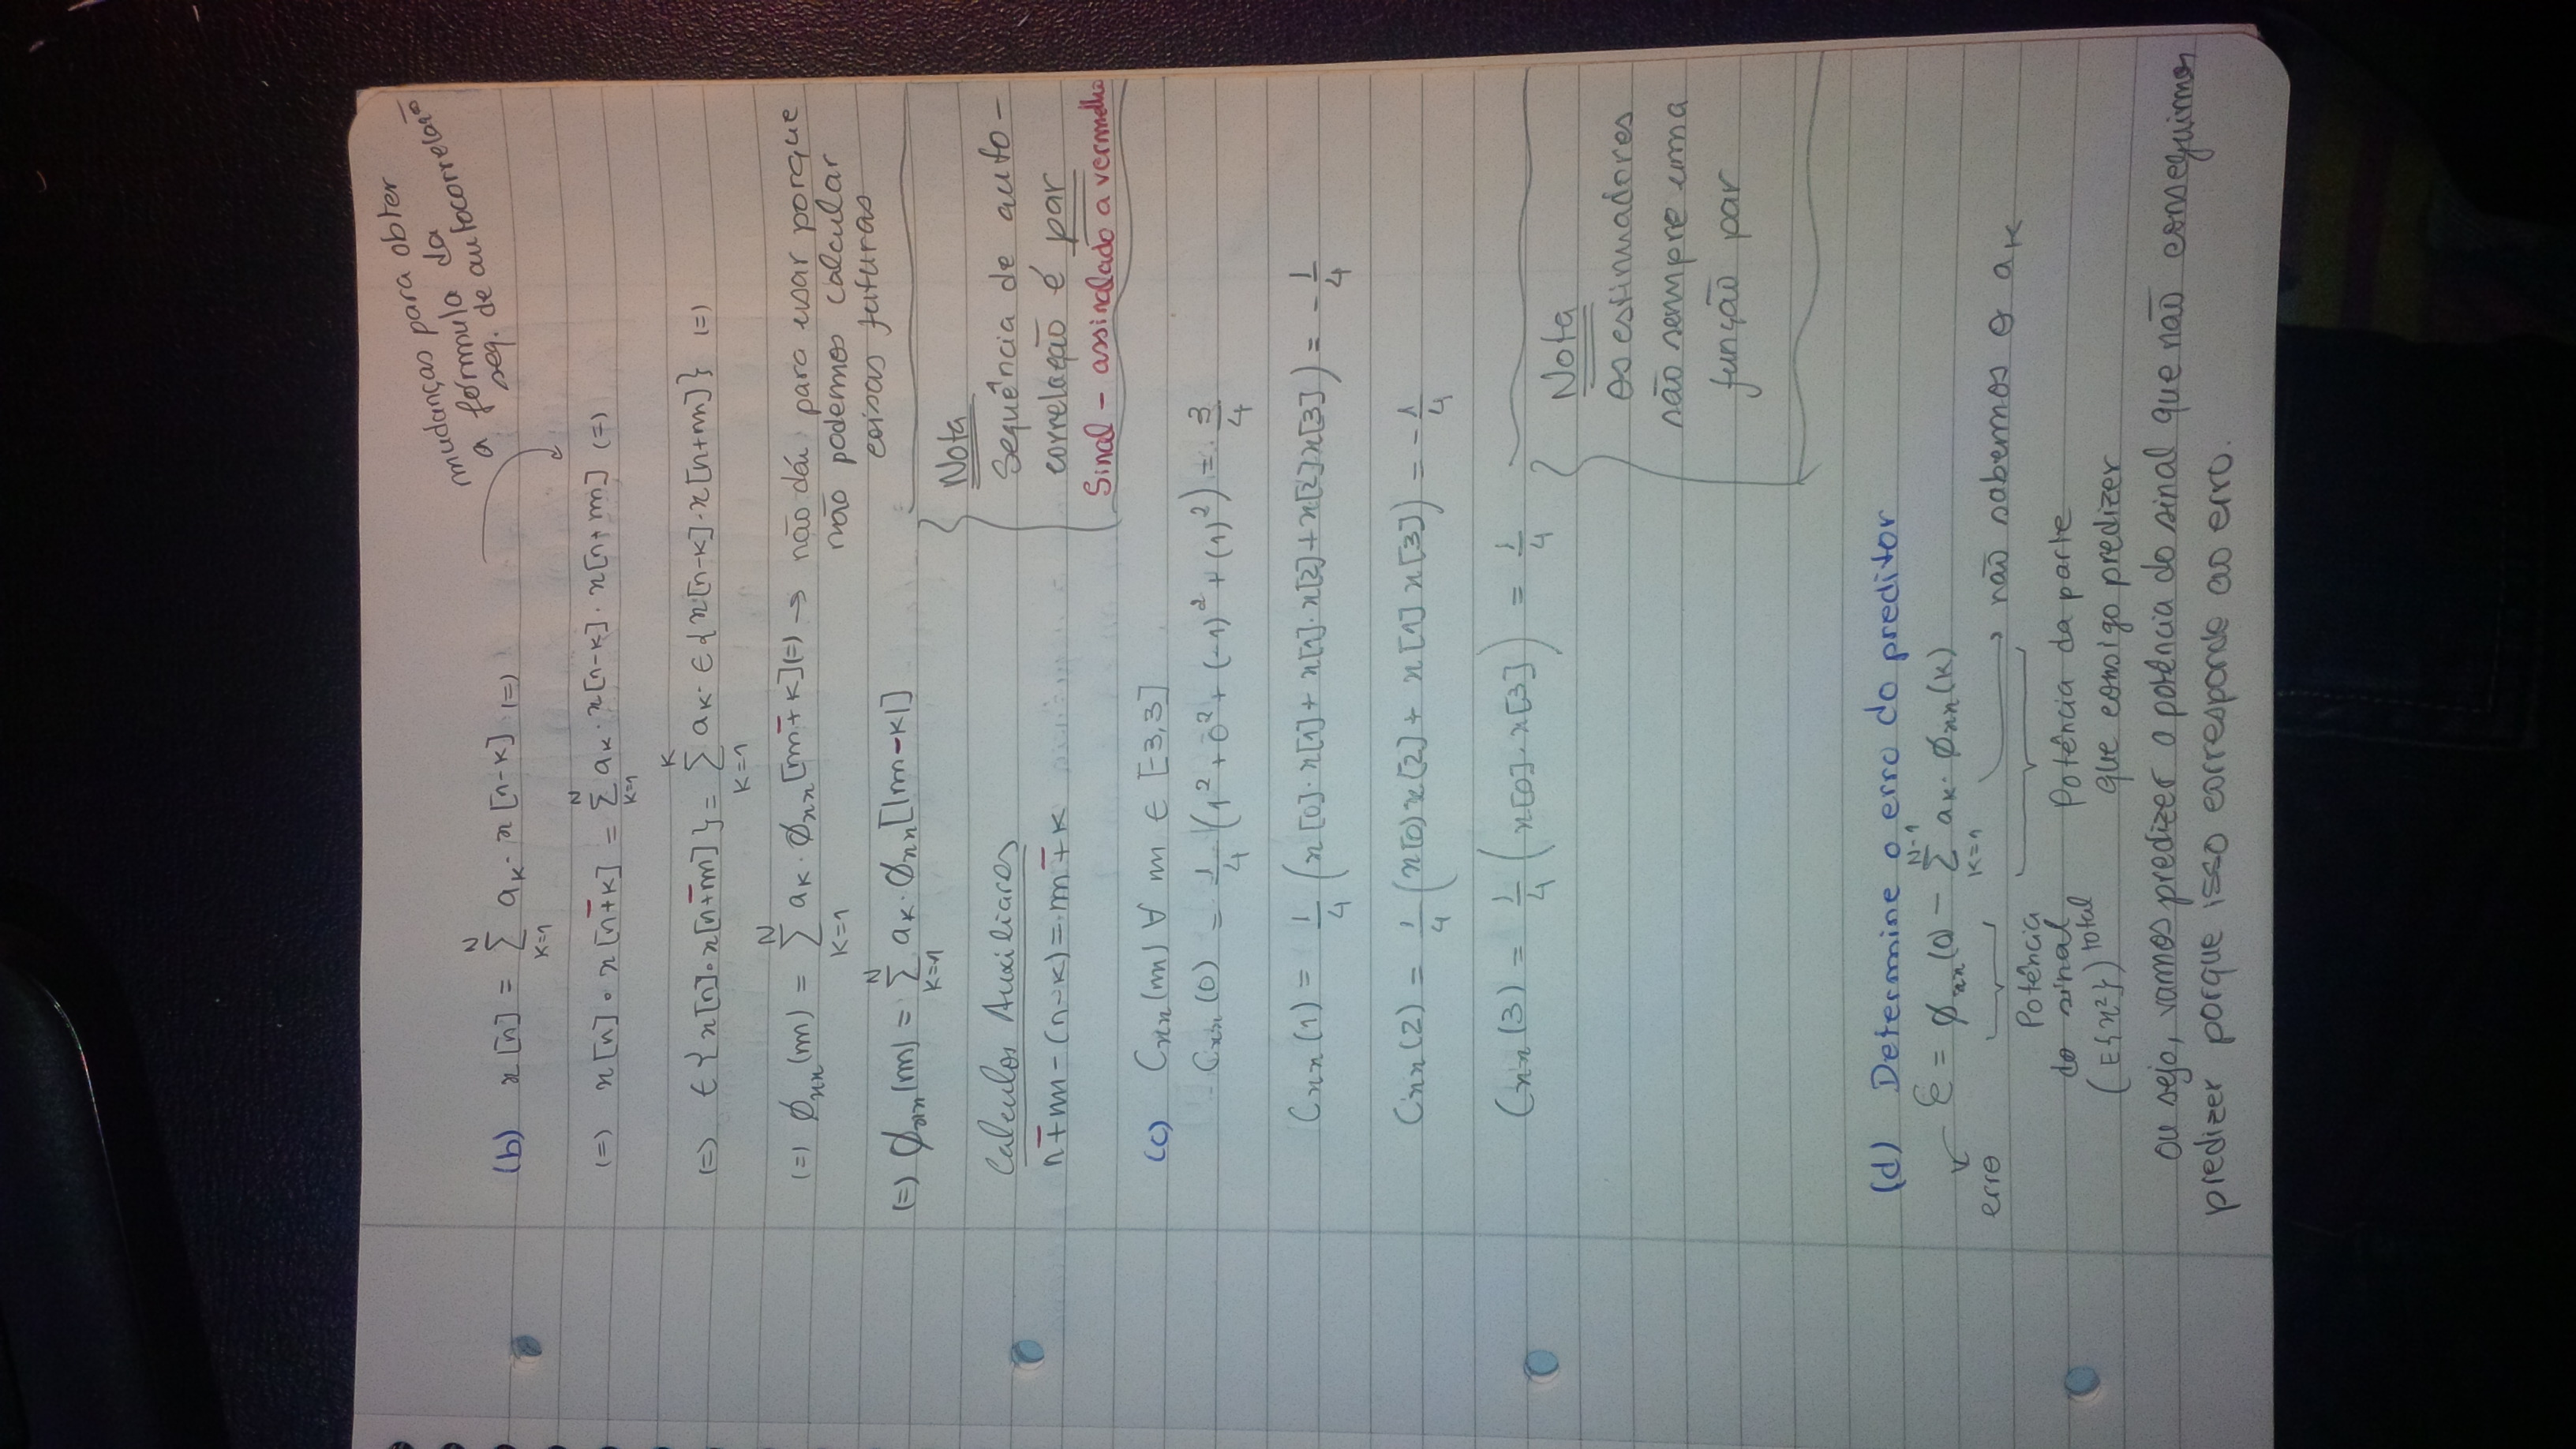 mudanças para obter
a fórmula da
seq. de autocorrelação
(b) x[n] = Σ_{k=1}^{N} a_k · x[n-k] (=)
(=) x[n] · x[n∓k] = Σ_{k=1}^{N} a_k · x[n-k] · x[n+m] (=)
(=) E{x[n]·x[n∓m]} = Σ_{k=1}^{K} a_k · E{x[n-k]·x[n+m]} (=)
(=) Ø_xx(m) = Σ_{k=1}^{N} a_k · Ø_xx[m∓k] (=) → não dá para usar porque
não podemos calcular
coisas futuras
(=) Ø_xx(m) = Σ_{k=1}^{N} a_k · Ø_xx[|m-k|]
Nota
Sequência de auto-
correlação é par
Sinal - assinalado a vermelho
Calculos Auxiliares
n∓m-(n-k)=m∓k
(c) C_xx(m) ∀ m ∈ [-3,3]
C_xx(0) = 1/4 (1² + 0² + (-1)² + (1)²) = 3/4
C_xx(1) = 1/4 (x[0]·x[1] + x[1]·x[2] + x[2]x[3]) = -1/4
C_xx(2) = 1/4 (x[0)x[2] + x[1]x[3]) = -1/4
C_xx(3) = 1/4 (x[0]·x[3]) = 1/4
Nota
os estimadores
são sempre uma
função par
(d) Determine o erro do preditor
ε = Ø_xx(0) - Σ_{k=1}^{N-1} a_k · Ø_xx(k)
erro
não sabemos o a_k
Potência
do sinal
(E{x²}) total
Potência da parte
que consigo predizer
ou seja, vamos predizer a potência do sinal que não conseguimos
predizer porque isso corresponde ao erro.